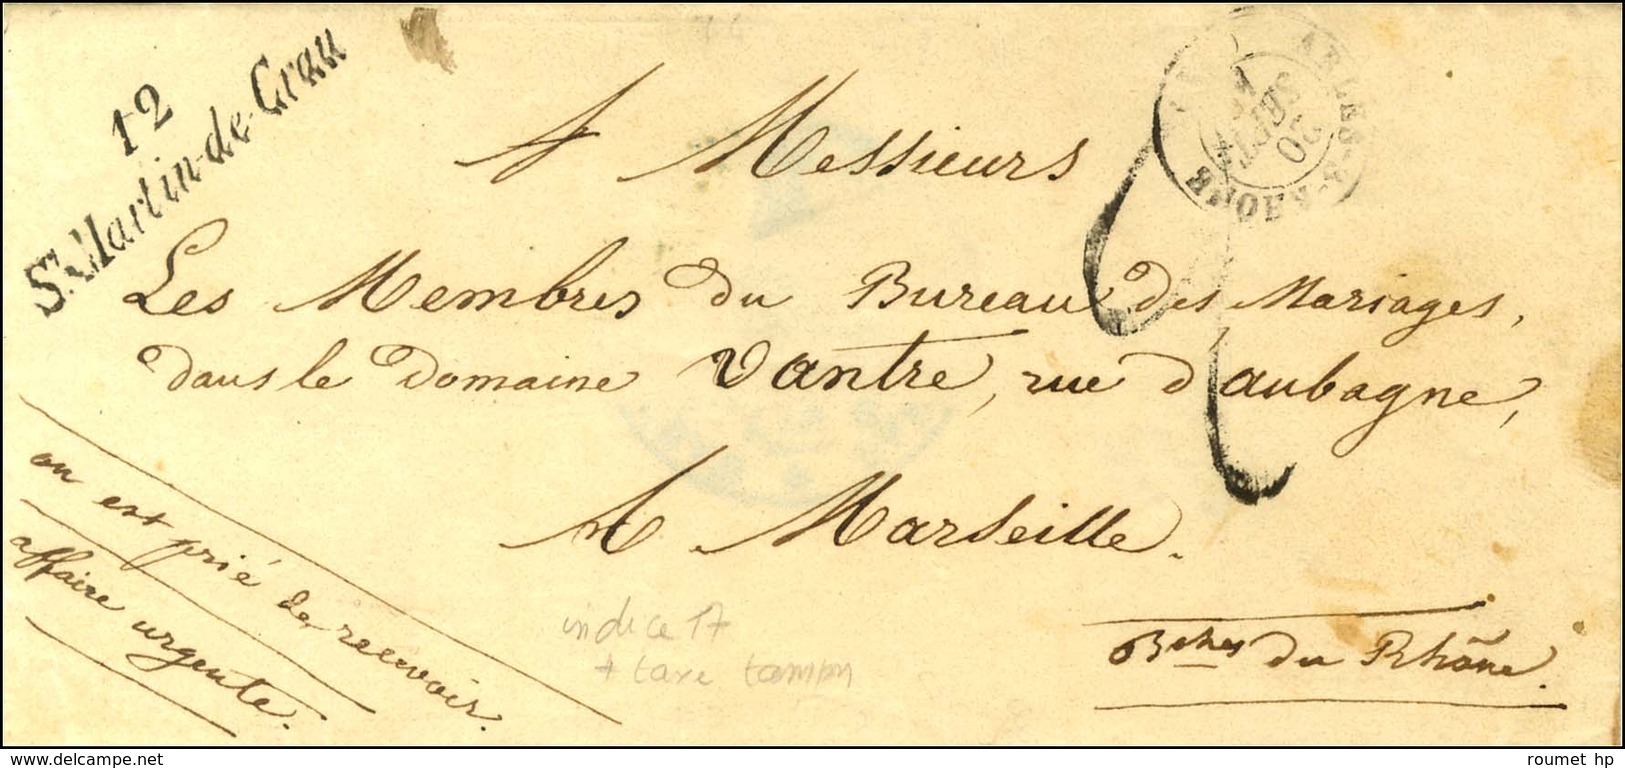 12
St Martin-de-Crau
ARLES-S-RHONE
20
SEPT
A Messieurs
Les Membres du Bureau des Mariages,
dans le Domaine Vantre, rue d'aubagne,
A Marseille.
Bches du Rhône.
on est prié de recevoir.
affaire urgente.
indice 17
+ taxe tampon
roumet hp